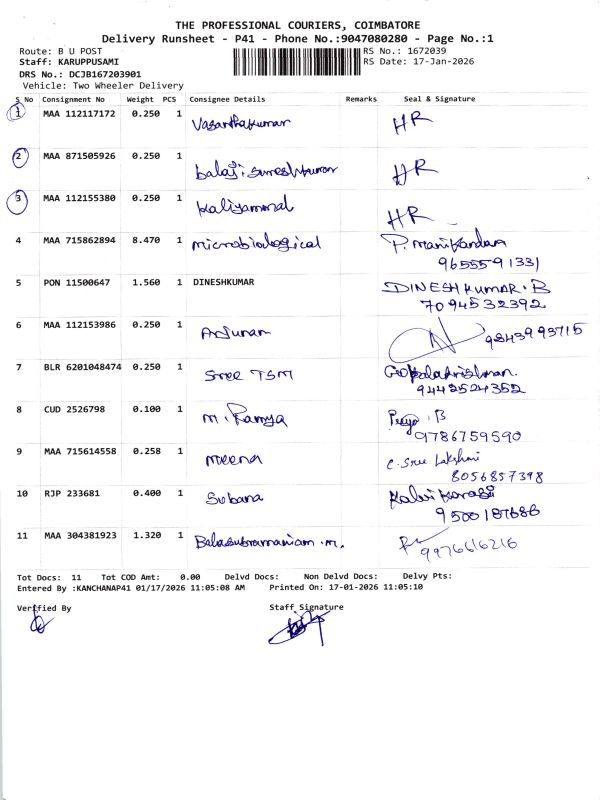 THE PROFESSIONAL COURIERS, COIMBATORE
Delivery Runsheet - P41 - Phone No.:9047080280 - Page No.:1
Route: B U POST RS No.: 1672039
Staff: KARUPPUSAMI RS Date: 17-Jan-2026
DRS No.: DCJB167203901
Vehicle: Two Wheeler Delivery
S No Consignment No Weight PCS Consignee Details Remarks Seal & Signature
1 MAA 112117172 0.250 1 Vasanthakumar HR
2 MAA 871505926 0.250 1 balaji.sureshkumar HR
3 MAA 112155380 0.250 1 Kaliyammal HR
4 MAA 715862894 8.470 1 microbiological P. Manikandan
9655591331
5 PON 11500647 1.560 1 DINESHKUMAR DINESHKUMAR.B
7094532392
6 MAA 112153986 0.250 1 Arjunan 9843993715
7 BLR 6201048474 0.250 1 Sree TSM Gopalakrishnan.
9442524352
8 CUD 2526798 0.100 1 M. Ramya B
9786759590
9 MAA 715614558 0.258 1 meena C. Sree Lakshmi
8056857398
10 RJP 233681 0.400 1 Subana Kalaikarasi
9500187686
11 MAA 304381923 1.320 1 Balasubramaniam.m.
9976616216
Tot Docs: 11 Tot COD Amt: 0.00 Delvd Docs: Non Delvd Docs: Delvy Pts:
Entered By :KANCHANAP41 01/17/2026 11:05:08 AM Printed On: 17-01-2026 11:05:10
Verified By Staff Signature